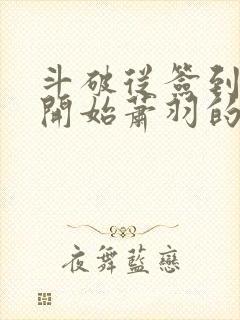 斗破從簽到
開始蕭羽的
夜舞藍戀